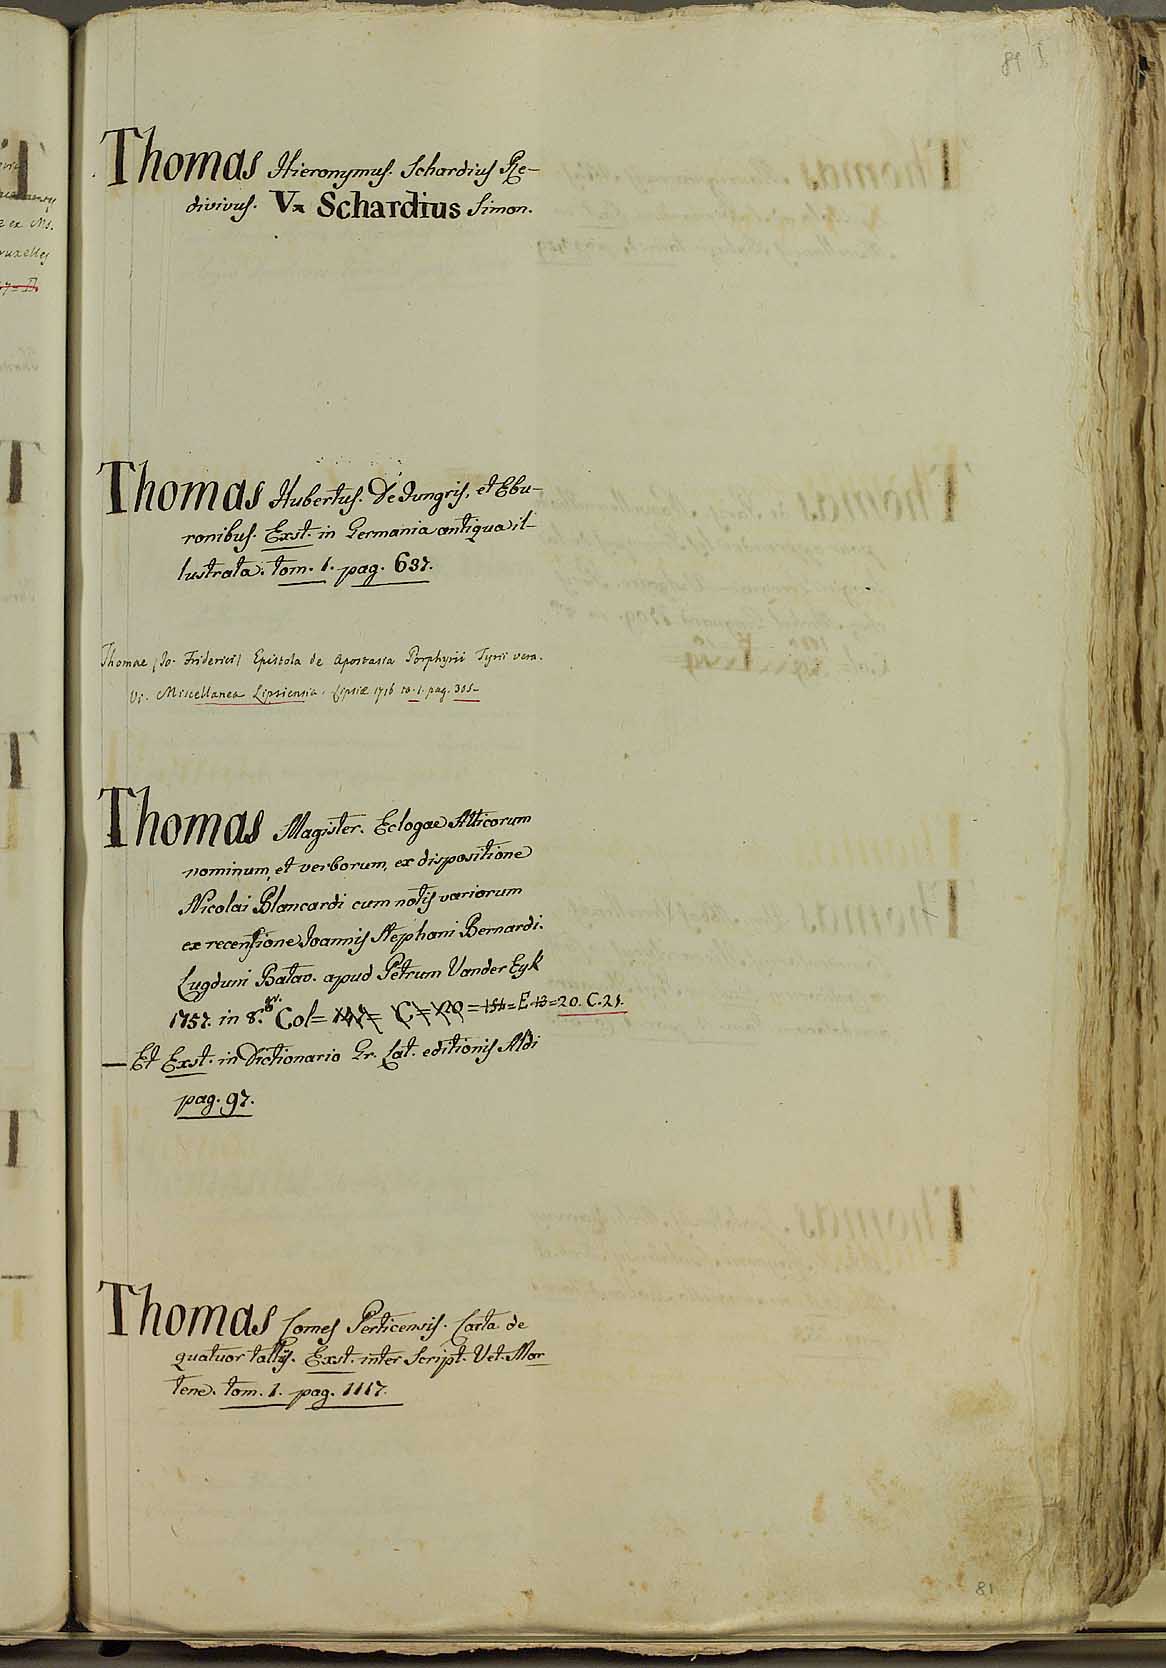 81
Thomas Hieronymus. Schardius Re-
divivus. V. Schardius Simon.
Thomas Hubertus. De Tungris, et Ebu-
ronibus. Exst. in Germania antiqua il-
lustrata. tom. 1. pag. 637.
Thomae (Jo. Friderici) Epistola de Apostasia Porphyrii Tyrii vera.
Vi. Miscellanea Lipsiensia. Lipsiæ 1716 to. 1. pag. 305
Thomas Magister. Eclogae Atticorum
nominum, et verborum, ex dispositione
Nicolai Blancardi cum notis variorum
ex recensione Joannis Stephani Bernardi.
Lugduni Batav. apud Petrum Vander Eyk
1757. in 8.° gr. Col= = C = = = E = 20. C. 21.
— Et Exst. in Dictionario Gr. Lat. editionis Aldi
pag. 97.
Thomas Comes Perticensis. Carta de
quatuor talliis. Exst. inter Script. Vet. Mar
tene. tom. 1. pag. 1117.
81